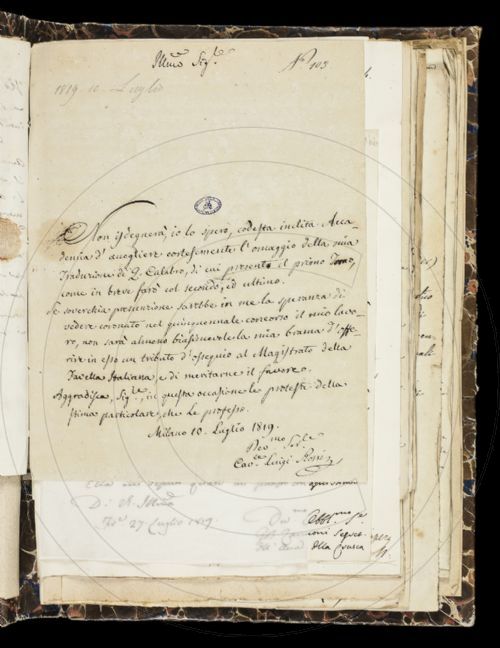 Illmo Sigr.
No 103
1819. 10. Luglio
Non isdegnerà, io lo spero, codesta inclita Acca-
demia d'accogliere cortesemente l'omaggio della mia
Traduzione di Q. Calabro, di cui presento il primo Tomo,
come in breve farò col secondo, ed ultimo.
Se soverchia presunzione sarebbe in me la speranza di
vedere coronato nel quinquennale concorso il mio lavo-
ro, non sarà almeno biasimevole la mia brama d'offe-
rire in esso un tributo d'ossequio al Magistrato della
Favella Italiana, e di meritarne il favore.
Aggradisca, Sigre, in questa occasione le proteste della
stima particolare, che le professo.
Milano 10. Luglio 1819.
Devmo Serve
Cave Luigi Rossi
D. V. Illma
27 Luglio 1819.
Segret.
della Crusca